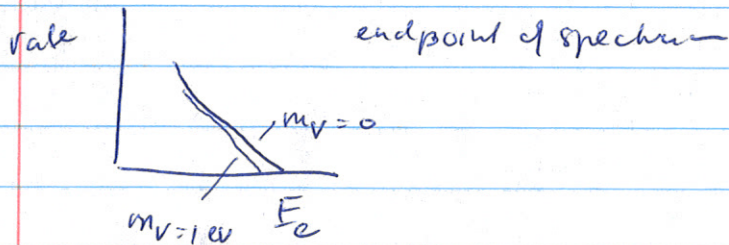 rate
endpoint of spectrum
mν=0
mν=1 eV
Ee